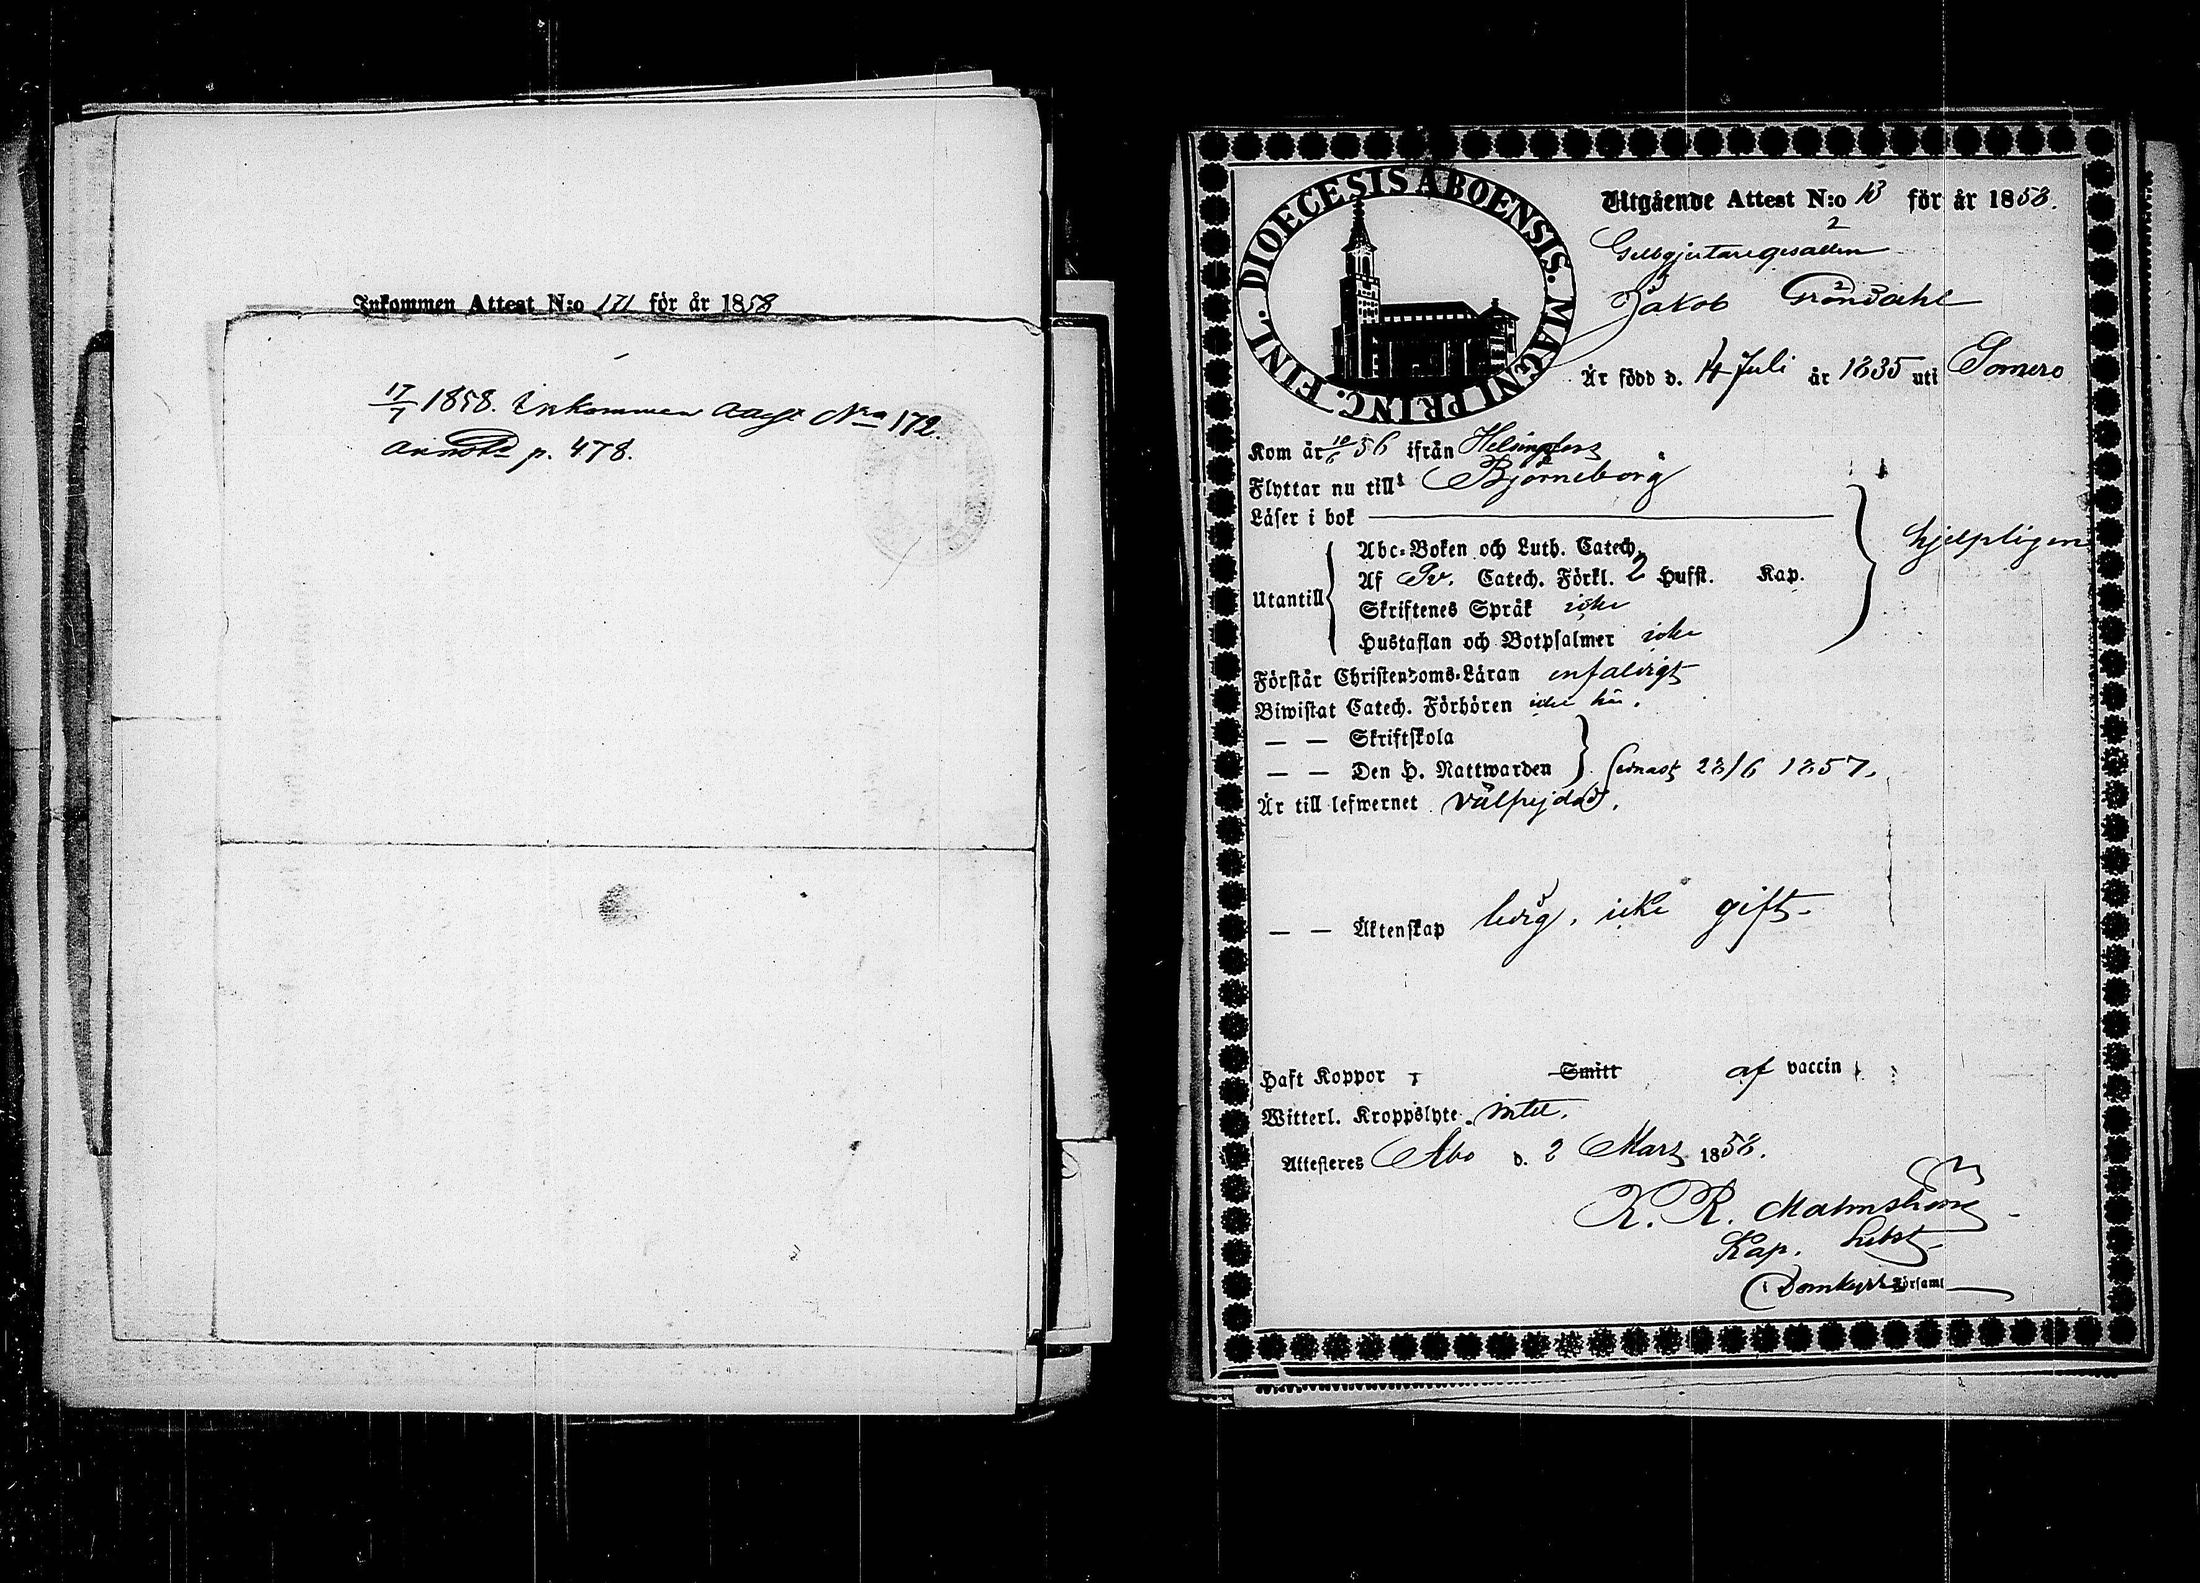 Inkommen Attest N:o 171 för år 1858
17/7 1858. Inkommen Attest No 172.
p. 478.
DIOECESIS ABOENSIS. MAGNI PRINC. FINL.
Utgående Attest N:o 13 för år 1858.
Gelbgjutaregesällen
Jakob Gröndahl
Är född d. 14 Juli år 1835 uti Somero
Kom år 10/6 56 ifrån Helsingfors
Flyttar nu till Björneborg
Läser i bok
Utantill
Abc-Boken och Luth. Catech.
Af Sv. Catech. Förkl. 2 Hufst. Kap.
Skriftenes Språk icke
Hustaflan och Botpsalmer icke
hjelpligen
Förstår Christendoms-Läran enfaldigt
Biwistat Catech. Förhören icke här.
— — Skriftskola
— — Den H. Nattwarden senast 28/6 1857.
Är till lefwernet välfrejdad.
— — Äktenskap ledig, icke gift.
Haft Koppor Smitt af vaccin
Witterl. Kroppslyte intet.
Attesteres Åbo d. 2 Mars 1858.
K. R. Malmström
Kap. Subst.
Domkyrk Församl